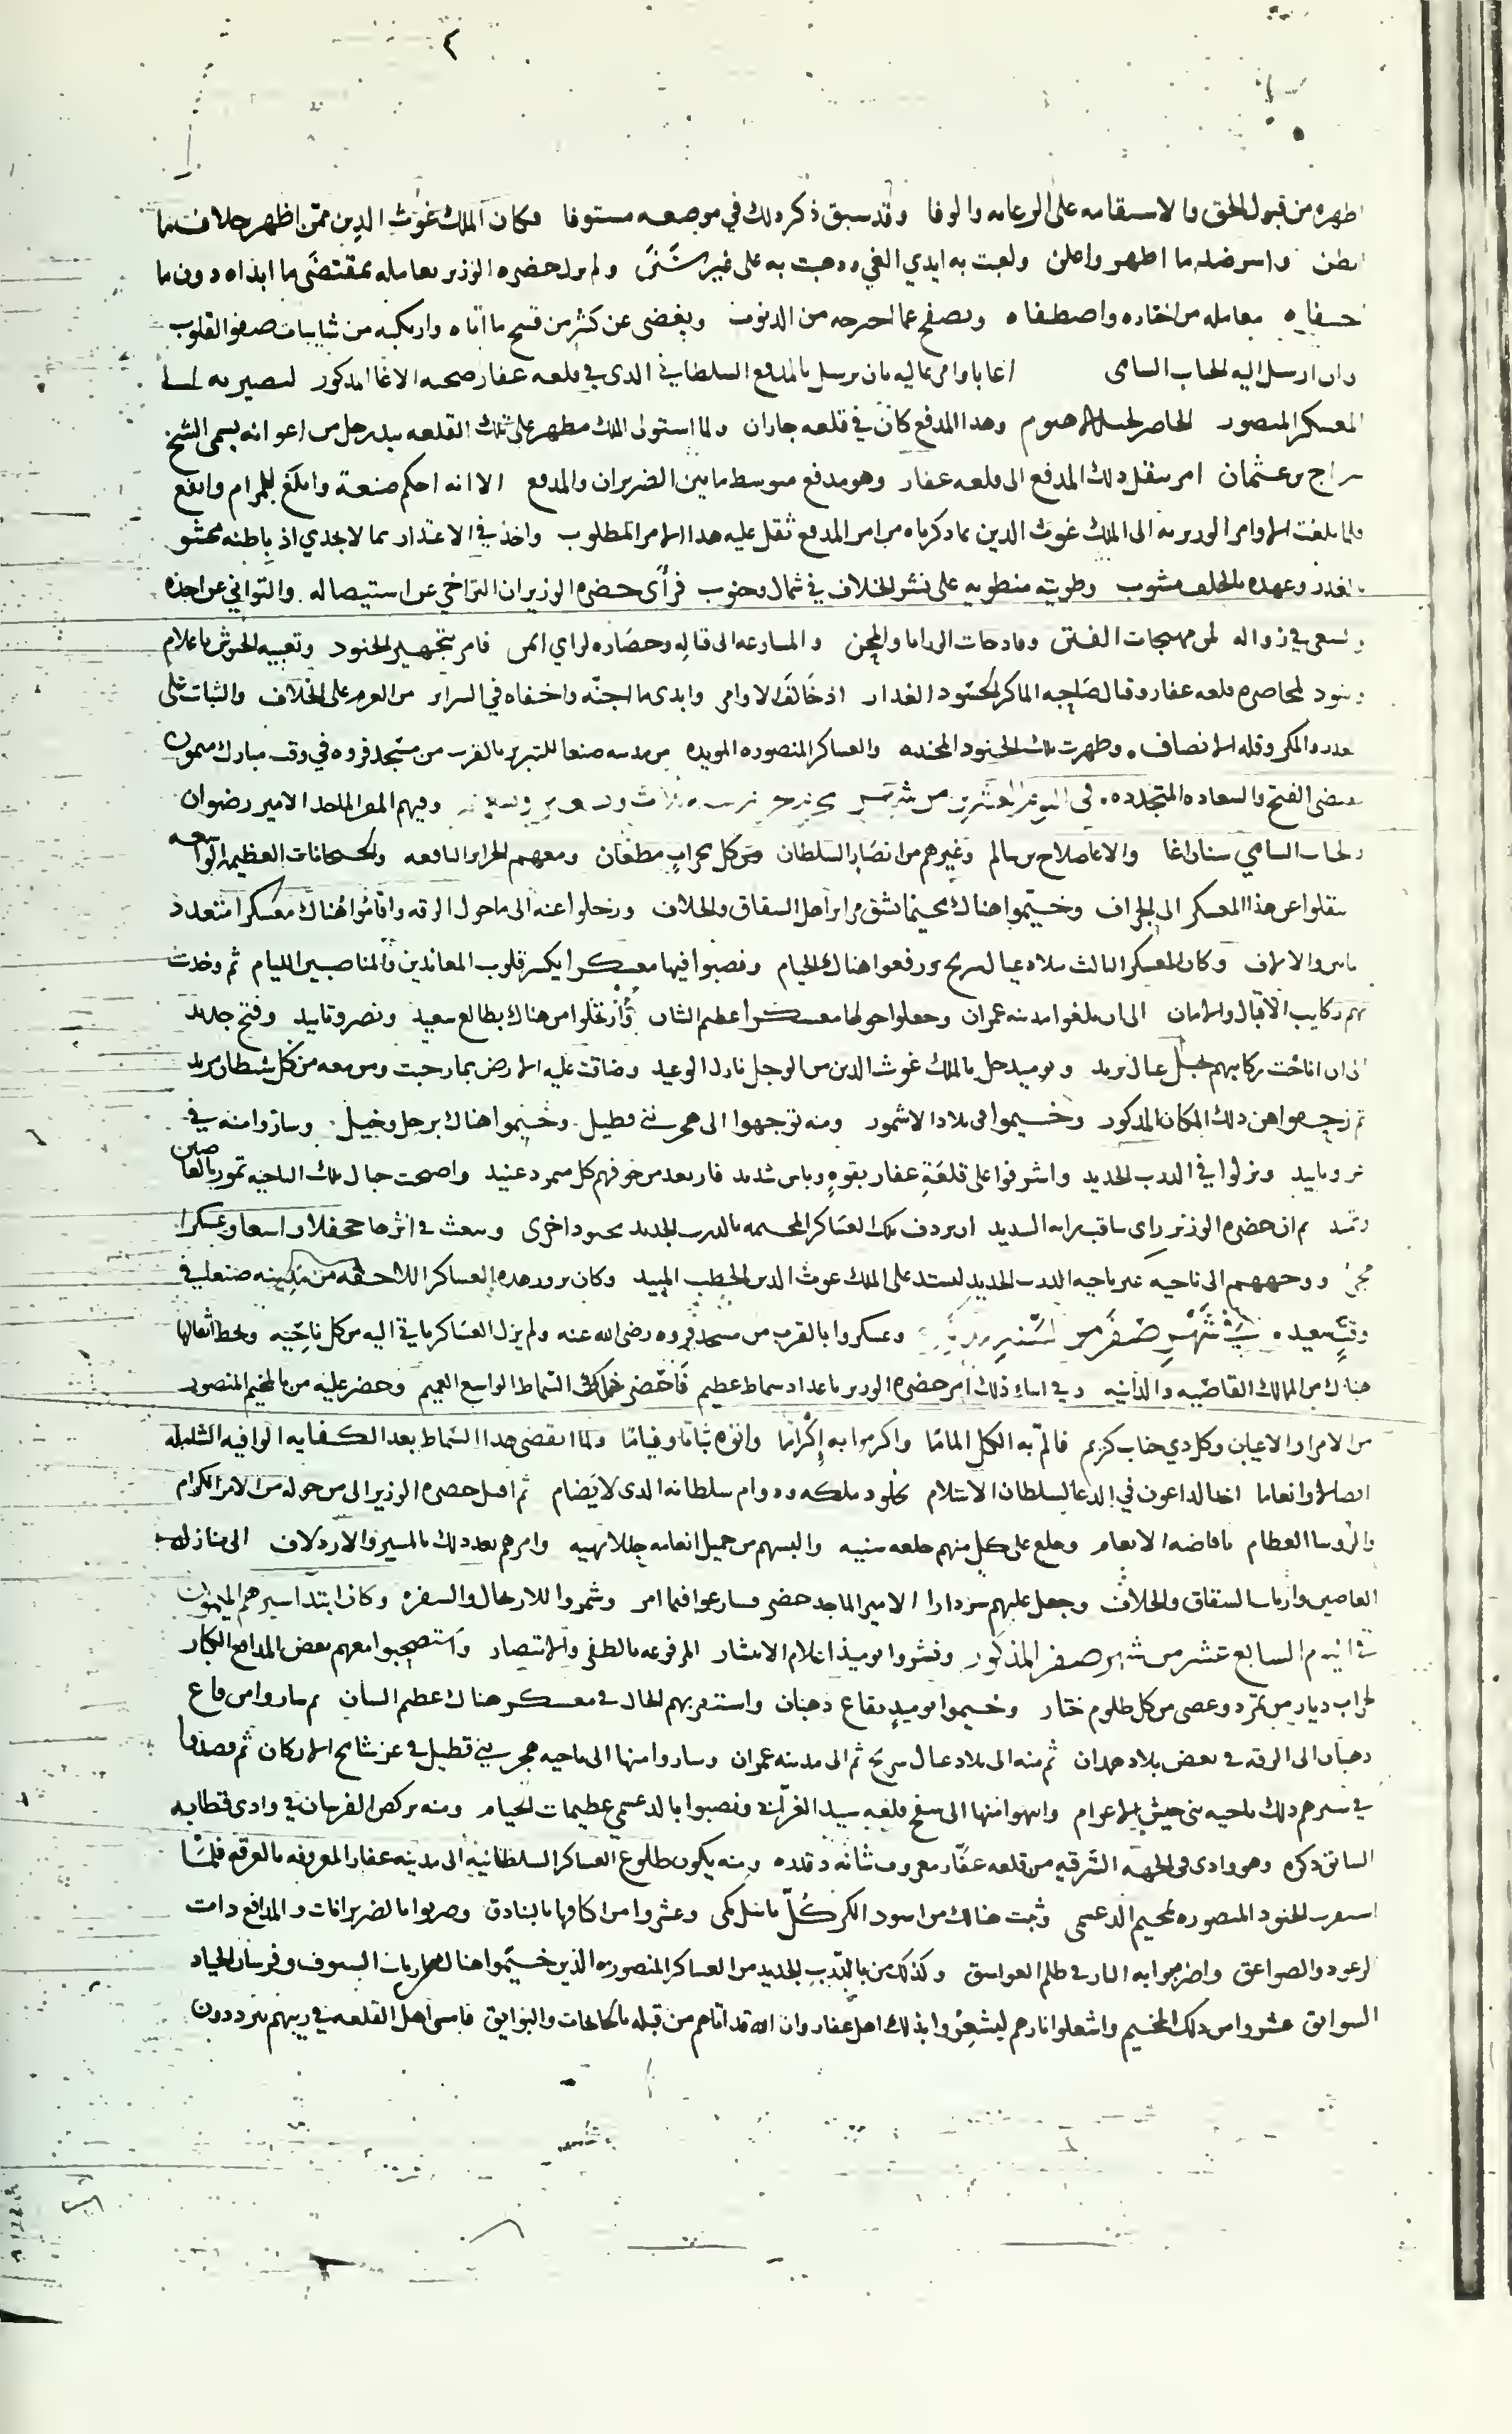 ٢
اظهره من قبول الحق والاستقامه على الرعايه والوفا وقد سبق ذكر ذلك في موضعه مستوفا فكان الملك غوث الدين ممن اظهر خلاف ما
ابطن واسر ضد ما اظهر واعلن ولعبت به ايدي الغي وذهبت به على غير سنن ولم يزل حضره الوزير يعامله بمقتضى ما ابداه دون ما
اخفاه معامله من اختاره واصطفاه ويصفح عما اجترحه من الذنوب ويغضى عن كثير من قبيح ما اتاه وارتكبه من شايبات صفو القلوب
وان ارسل اليه الجناب السامى اغا باوامر عاليه بان يرسل بالمدفع السلطاني الذى في قلعه عفار صحبه الاغا المذكور ليصير به الى
المعسكر المنصور الحاصر لجبل الاهنوم وهذا المدفع كان في قلعه جازان ولما استولى الملك مطهر على تلك القلعه بيد رجل من اعوانه يسمى الشيخ
سراج بن عثمان امر بنقل ذلك المدفع الى قلعه عفار وهو مدفع متوسط ما بين الضربزان والمدفع الا انه احكم صنعة وابلغ للمرام وانفع
فلما بلغت الاوامر الوزيريه الى الملك غوث الدين بما ذكرناه من امر المدفع ثقل عليه هذا الامر المطلوب واخذ في الاعتذار بما لا يجدي اذ باطنه محشو
بالغدر وعهده بالخلف مشوب وطويته منطويه على نشر الخلاف في شمال وجنوب فرأى حضره الوزير ان التراخي عن استيصاله والتواني عن اخذه
والسعى في زواله لمن مهيجات الفتن وقادحات الرزايا والمحن والمسارعه الى قتاله وحصاره لراي امر فامر بتجهيز الجنود وتعبيه الجيوش باعلام
وبنود لمحاصره قلعه عفار وقتال صاحبه الماكر الحسود الغدار اذ خالف الاوامر وابدى ما اجنه واخفاه في السراير من العزم على الخلاف والثبات على
الغدر والمكر وقله الانصاف وظهرت تلك الجنود المجنده والعساكر المنصوره المويده من مدينه صنعا للتبريز بالقرب من مسجد فروه في وقت مبارك ميمون
يقضى الفتح والسعاده المتجدده في اليوم العشرين من شهر وفيهم الامير رضوان
والجناب السامي سنان اغا والاغا صلاح بن سالم وغيرهم من انصار السلطان من كل محراب مطعان ومعهم الخزاين النافعه والجبخانات العظيمه الواسعه
تنقلوا عن هذا المعسكر الى الجراف وخيموا هناك تخيما شق مراير اهل الشقاق والخلاف ورحلوا عنه الى ما حول الرقه واقاموا هناك معسكرا متعدد
وكان المعسكر الثالث ببلاد عيال سريح ورفعوا هناك الخيام ونصبوا فيها معسكرا يكسر قلوب المعاندين والمناصبين الليام ثم وخدت
بهم ركايب الاقبال والامان الى ان بلغوا مدينه عمران وجعلوا حولها معسكرا عظيم الشان وارتحلوا من هناك بطالع سعيد ونصر وتاييد وفتح جديد
الى ان اناخت ركايبهم بجبل عيال يزيد ويوميذ حل بالملك غوث الدين من الوجل نازل الوعيد وضاقت عليه الارض بما رحبت ومن معه من كل شيطان مريد
ثم زحفوا من ذلك المكان المذكور وخيموا في بلاد الاشمور ومنه توجهوا الى هجر بني قطيل وخيموا هناك برجل وخيل وساروا منه في
نصر وتاييد ونزلوا في الدرب الجديد واشرفوا على قلعة عفار بقوه وباس شديد فارتعد من خوفهم كل متمرد عنيد واصبحت جبال تلك الناحيه تمور بالعاصين
وتميد ثم ان حضره الوزير راى بثاقب رايه السديد ان يردف تلك العساكر المخيمه بالدرب الجديد بجنود اخرى وبعث في اثرها جحفلا واسعا وعسكرا
مجرا ووجههم الى ناحيه غير ناحيه الدرب الجديد ليستد على الملك غوث الدين الخطب المبيد وكان بروز هذه العساكر اللاحقه من مدينه صنعا في
وقت سعيده في شهر صفر من السنه المذكوره وعسكروا بالقرب من مسجد فروه رضى الله عنه ولم يزل العساكر ياتي اليه من كل ناحيه ويحط اثقالها
هناك من الممالك القاصيه والدانيه وفي اثناء ذلك امر حضره الوزير باعداد سماط عظيم فاحضر ذلك السماط الواسع العميم وحضر عليه من بالمخيم المنصور
من الامرا والاعيان وكل ذي جناب كريم فالم به الكل الماما واكرموا به إكراما ولما انقضى هذا السماط بعد الكفايه الوافيه الشامله
افضالا وانعاما اخذ الداعون في الدعا لسلطان الاسلام بخلود ملكه ودوام سلطانه الذى لا يضام ثم اقبل حضره الوزير الى من حوله من الامرا الكرام
والروسا العظام بافاضه الانعام وخلع على كل منهم خلعه سنيه والبسهم من جميل انعامه حللا بهيه وامرهم بعد ذلك بالمسير والازدلاف الى منازل
العاصين وارباب الشقاق والخلاف وجعل عليهم سردارا الامير الماجد خضر فسارعوا فيما امر وشمروا للارتحال والسفره وكان ابتدا سيرهم الميمون
في اليوم السابع عشر من شهر صفر المذكور ونشروا يوميذ اعلام الانتشار المرفوعه بالظفر والانتصار واستصحبوا معهم بعض المدافع الكبار
لخراب ديار من تمرد وعصى من كل ظلوم ختار وخيموا يوميذ بقاع ذهبان واستقر بهم الحال في معسكر هناك عظيم الشان ثم ساروا من قاع
ذهبان الى الرقه في بعض بلاد همدان ثم منه الى بلاد عيال سريح ثم الى مدينه عمران وساروا منها الى ناحيه هجر بني قطيل في عز شامخ الاركان ثم قصدوا
في سيرهم ذلك ناحيه بني حيش وانتهوا منها الى سفح قلعه سيد الغراب ونصبوا بالدعمي عظيمات الخيام ومنه يركض الفرسان في وادى قطابه
السابق ذكره وهو وادى في الجهه الشرقيه من قلعه عفار معروف شانه وقدره ومنه يكون طلوع العساكر السلطانيه الى مدينه عفار المعروفه بالعرقه فلما
استقرت الجنود المنصوره بمخيم الدعمى وثبت هنالك من اسود الكر كل باسل كمى وعشروا من اكافها بالبنادق وضربوا بالضربزانات والمدافع ذات
الرعود والصواعق واضرموا به النار في ظلم الغواسق وكذلك من بالدرب الجديد من العساكر المنصوره الذين خيموا هناك السيوف وفرسان الجياد
السوابق عشروا من ذلك المخيم واشعلوا نارهم ليشعروا بذلك اهل عفار وان الله قد اتاهم من قبله بالجايحات والبوايق فامسى اهل القلعه في ريبهم يترددون